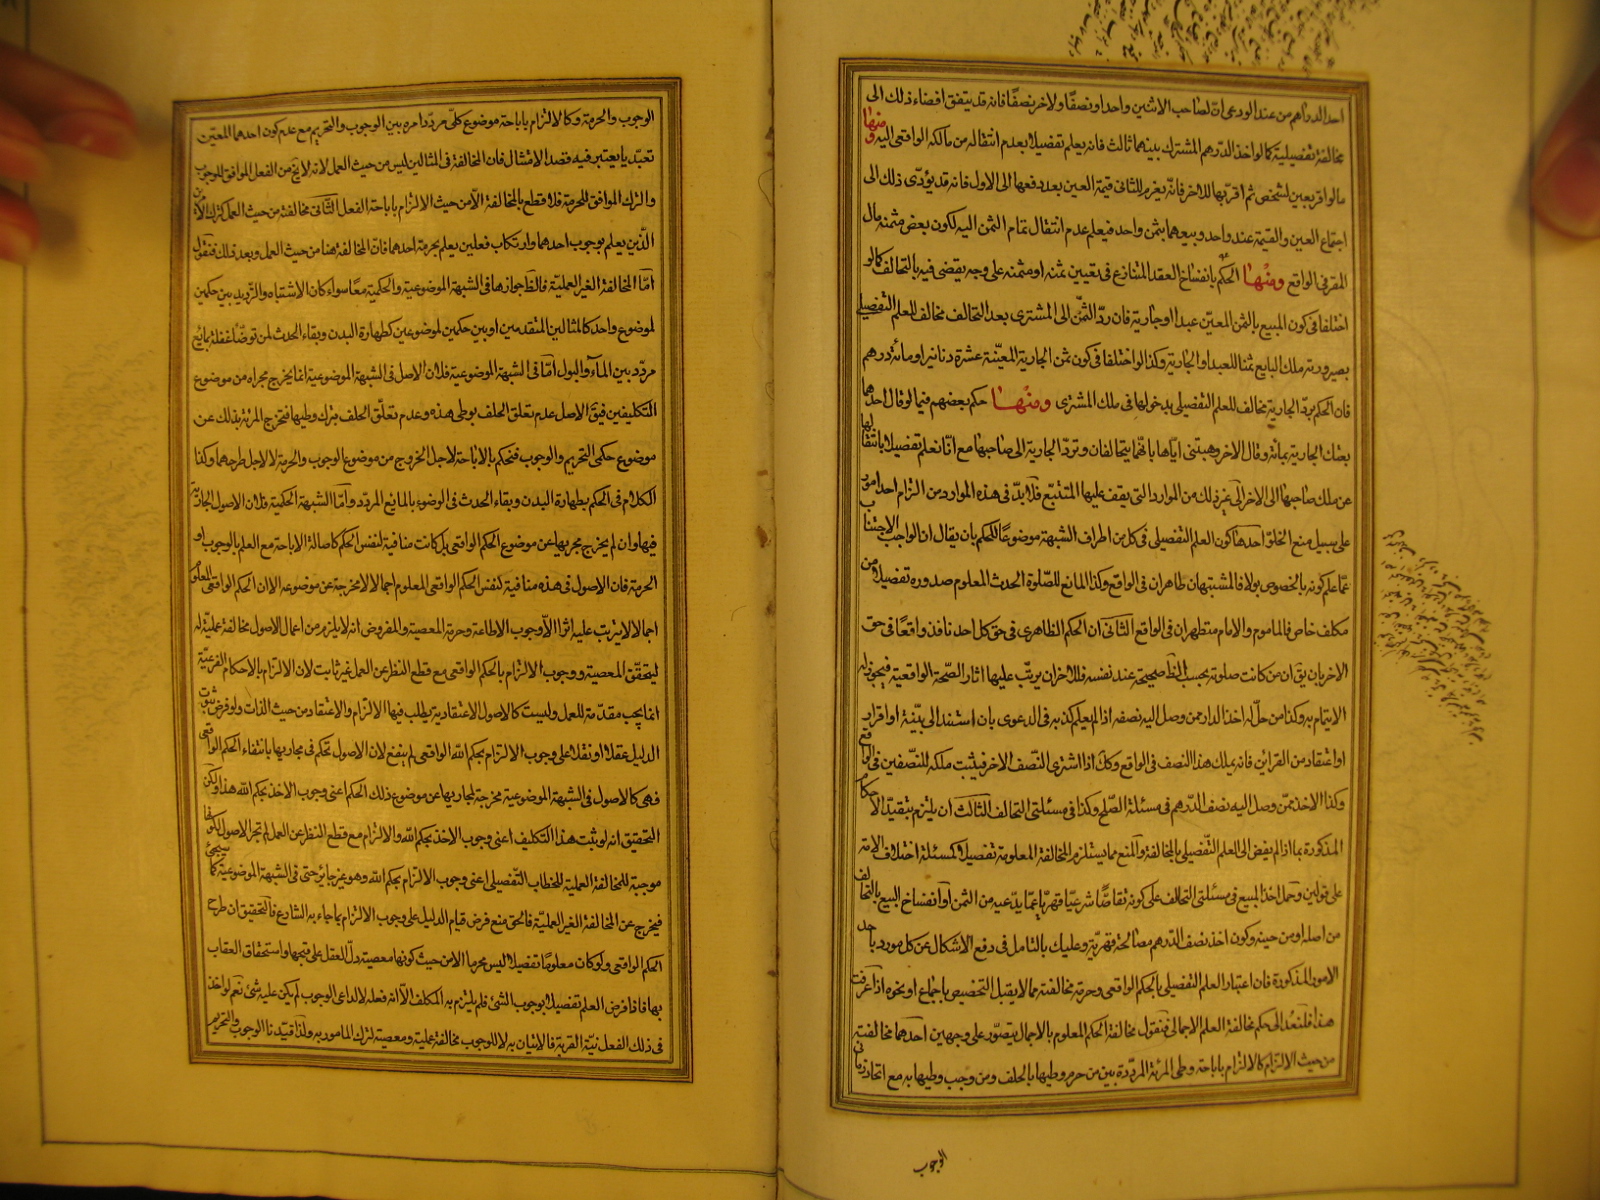 احد الدراهم من عند الودعى ان لصاحب الاثنين واحدا و نصفا و للاخر نصفا فانه قد يتفق افضاء ذلك الى
مخالفة تفصيلية كما لو اخذ الدرهم المشترك بينهما ثالث فانه يعلم تفصيلا بعدم انتقاله من مالكه الواقعى اليه ومنها
ما لو اقر بعين لشخص ثم اقر بها للاخر فانه يغرم للثانى قيمة العين بعد دفعها الى الاول فانه قد يؤدى ذلك الى
اجتماع العين والقيمة عند واحد و بيعهما بثمن واحد فيعلم عدم انتقال تمام الثمن اليه لكون بعض مثمنه مال
المقر فى الواقع ومنها الحكم بانفساخ العقد المتنازع فى تعيين ثمنه او مثمنه على وجه يقضى فيه بالتحالف كما لو
اختلفا فى كون المبيع بالثمن المعين عبدا او جارية فان رد الثمن الى المشترى بعد التحالف مخالف للعلم التفصيلى
بصيرورته ملك البايع ثمنا للعبد او الجارية وكذا لو اختلفا فى كون ثمن الجارية المعينة عشرة دنانير او مائة درهم
فان الحكم برد الجارية مخالف للعلم التفصيلى بدخولها فى ملك المشترى ومنها حكم بعضهم فيما لو قال احدهما
بعتك الجارية بمائة وقال الاخر وهبتنى اياها بانهما يتحالفان وترد الجارية الى صاحبها مع انا نعلم تفصيلا بانتقالها
عن ملك صاحبها الى الاخر الى غير ذلك من الموارد التى يقف عليها المتتبع فلا بد فى هذه الموارد من التزام احد امور
على سبيل منع الخلو احدها كون العلم التفصيلى فى كل من اطراف الشبهة موضوعا للحكم بان يقال ان الواجب الاجتناب
عما علم كونه بالخصوص بولا فالمشتبهان طاهران فى الواقع وكذا المانع للصلوة الحدث المعلوم صدوره تفصيلا من
مكلف خاص فالماموم والامام متطهران فى الواقع الثانى ان الحكم الظاهرى فى حق كل احد نافذ واقعا فى حق
الاخر بان يق ان من كانت صلوته بحسب الظ صحيحة عند نفسه فللاخر ان يرتب عليها اثار الصحة الواقعية فيجوز له
الايتمام به وكذا من حل له اخذ الدار ممن وصل اليه نصفه اذا لم يعلم كذبه فى الدعوى بان استند الى بينة او اقرار
او اعتقاد من القرائن فانه يملك هذا النصف فى الواقع وكك اذا اشترى النصف الاخر فيثبت ملكه للنصفين فى الواقع
وكذا الاخذ ممن وصل اليه نصف الدرهم فى مسئلة الصلح وكذا فى مسئلتى التحالف الثالث ان يلتزم بتقييد الاحكام
المذكورة بما اذا لم يفض الى العلم التفصيلى بالمخالفة والمنع مما يستلزم المخالفة المعلومة تفصيلا كمسئلة اختلاف الامة
على قولين وحمل اخذ المبيع فى مسئلتى التحالف على كونه تقاصا شرعيا قهريا عما يدعيه من الثمن او انفساخ البيع بالتحالف
من اصله او من حينه وكون اخذ نصف الدرهم مصالحة قهرية وعليك بالتامل فى دفع الاشكال عن كل مورد باحد
الامور المذكورة فان اعتبار العلم التفصيلى بالحكم الواقعى وحرمة مخالفته مما لا يقبل التخصيص باجماع او نحوه اذا عرفت
هذا فلنعد الى حكم مخالفة العلم الاجمالى فنقول مخالفة الحكم المعلوم بالاجمال يتصور على وجهين احدهما مخالفته
من حيث الالتزام كالالتزام باباحة وطى المرئة المرددة بين من حرم وطيها بالحلف ومن وجب وطيها به مع اتحاد زمانى
الوجوب
الوجوب والحرمة وكالالتزام باباحة موضوع كلى مردد امره بين الوجوب والتحريم مع عدم كون احدهما المعين
تعبديا يعتبر فيه قصد الامتثال فان المخالفة فى المثالين ليس من حيث العمل لانه لا يخ من الفعل الموافق للوجوب
والترك الموافق للحرمة فلا قطع بالمخالفة الا من حيث الالتزام باباحة الفعل الثانى مخالفته من حيث العمل كترك الامرين
الذين يعلم بوجوب احدهما وارتكاب فعلين يعلم بحرمة احدهما فان المخالفة هنا من حيث العمل وبعد ذلك فنقول
اما المخالفة الغير العملية فالظ جوازها فى الشبهة الموضوعية والحكمية معا سواء كان الاشتباه والترديد بين حكمين
لموضوع واحد كالمثالين المتقدمين او بين حكمين لموضوعين كطهارة البدن وبقاء الحدث لمن توضا غفلة بمايع
مردد بين الماء والبول اما فى الشبهة الموضوعية فلان الاصل فى الشبهة الموضوعية انما يخرج مجراه من موضوع
التكليفين فيق الاصل عدم تعلق الحلف بوطى هذه وعدم تعلق الحلف بترك وطيها فتخرج المرئة بذلك عن
موضوع حكمى التحريم والوجوب فنحكم بالاباحة لاجل الخروج من موضوع الوجوب والحرمة لا لاجل طرحهما وكذا
الكلام فى الحكم بطهارة البدن وبقاء الحدث فى الوضوء بالمايع المردد واما الشبهة الحكمية فلان الاصول الجارية
فيها وان لم يخرج مجريها عن موضوع الحكم الواقعى بل كانت منافية لنفس الحكم كاصالة الاباحة مع العلم بالوجوب او
الحرمة فان الاصول فى هذه منافية لنفس الحكم الواقعى المعلوم اجمالا لا مخرجة عن موضوعه الا ان الحكم الواقعى المعلوم
اجمالا لا يترتب عليه اثر الا وجوب الاطاعة وحرمة المعصية والمفروض انه لا يلزم من اعمال الاصول مخالفة عملية له
ليتحقق المعصية ووجوب الالتزام بالحكم الواقعى مع قطع النظر عن العمل غير ثابت لان الالتزام بالاحكام الفرعية
انما يجب مقدمة للعمل وليست كالاصول الاعتقادية يطلب فيها الالتزام والاعتقاد من حيث الذات ولو فرض ثبوت
الدليل عقلا او نقلا على وجوب الالتزام بحكم الله الواقعى لم ينفع لان الاصول تحكم فى مجاريها بانتفاء الحكم الواقعى
فهى كالاصول فى الشبهة الموضوعية مخرجة لمجاريها عن موضوع ذلك الحكم اعنى وجوب الاخذ بحكم الله هذا ولكن
التحقيق انه لو ثبت هذا التكليف اعنى وجوب الاخذ بحكم الله والالتزام مع قطع النظر عن العمل لم تجر الاصول لكونها
موجبة للمخالفة العملية للخطاب التفصيلى اعنى وجوب الالتزام بحكم الله وهو غير جايز حتى فى الشبهة الموضوعية كما سيجئ
فيخرج عن المخالفة الغير العملية فالحق منع فرض قيام الدليل على وجوب الالتزام بما جاء به الشارع فالتحقيق ان طرح
الحكم الواقعى ولو كان معلوما تفصيلا ليس محرما الا من حيث كونها معصية دل العقل على قبحها واستحقاق العقاب
بها فاذا فرض العلم تفصيلا بوجوب الشئ فلم يلتزم به المكلف الا انه فعله لا لداعى الوجوب لم يكن عليه شئ نعم لو اخذ
فى ذلك الفعل نية القربة فالاتيان به لا للوجوب مخالفة عملية ومعصية لترك المامور به ولذا قيدنا الوجوب والتحريم